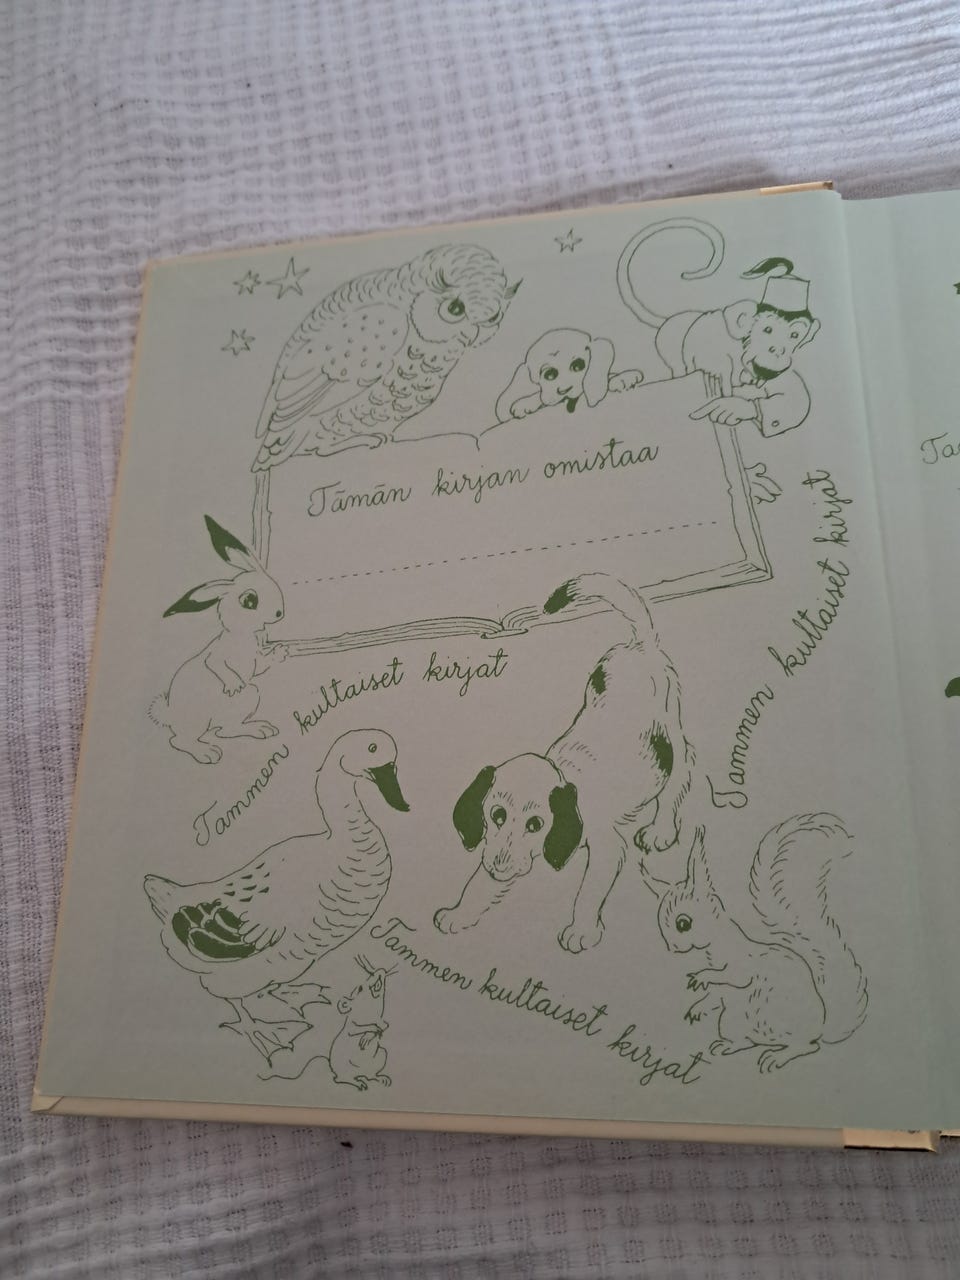 Tämän kirjan omistaa
Tammen kultaiset kirjat
Tammen kultaiset kirjat
Tammen kultaiset kirjat